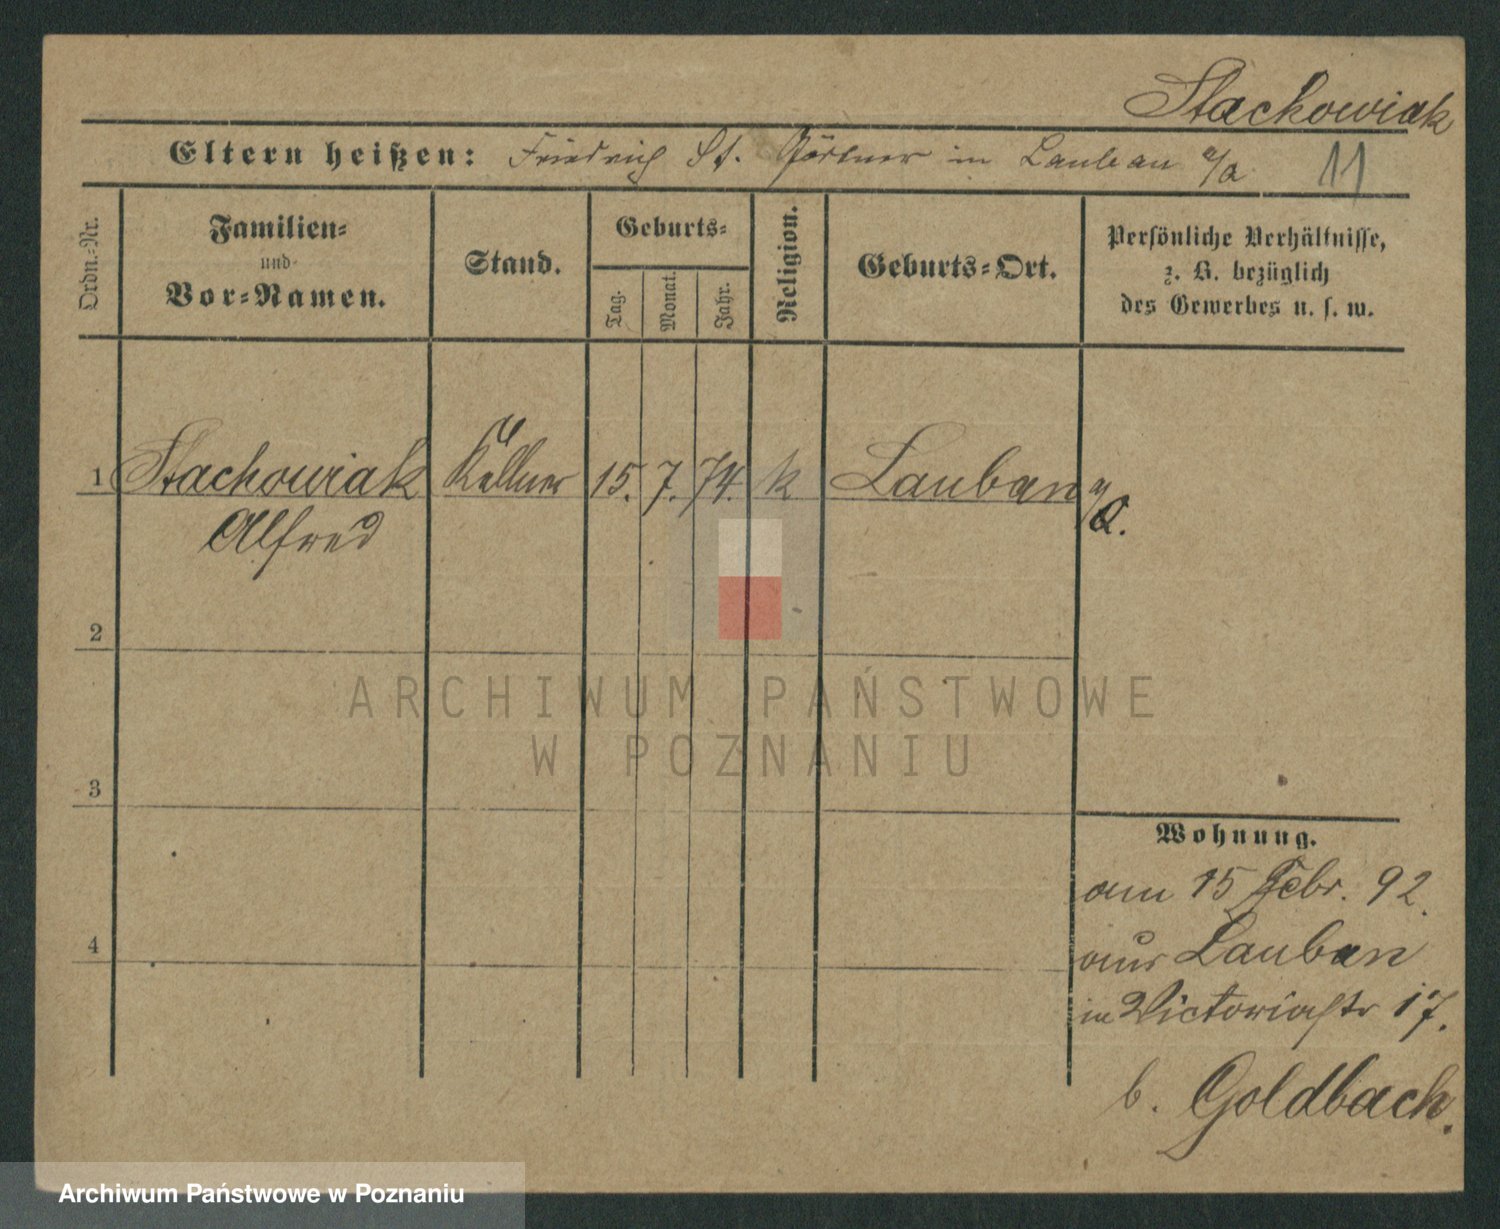 Stachowiak
Eltern heißen: Friedrich St. Gärtner in Lauban a/Q
11
Ordn.-Nr.
Familien-
und
Vor-Namen.
Stand.
Geburts-
Tag.
Monat.
Jahr.
Religion.
Geburts-Ort.
Persönliche Verhältnisse,
z. B. bezüglich
des Gewerbes u. s. w.
1 Stachowiak Kellner 15. 7. 74. k Lauban a/Q.
Alfred
2
3
4
Wohnung.
am 15 Febr. 92.
aus Lauban
in Victoriastr 17.
b. Goldbach.
ARCHIWUM PAŃSTWOWE
W POZNANIU
Archiwum Państwowe w Poznaniu